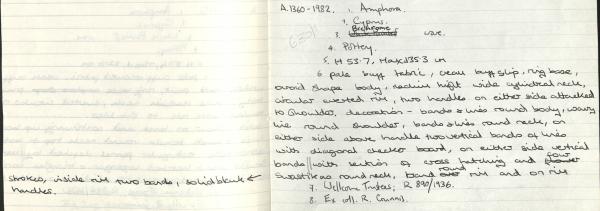 A.1360-1982. 1. Amphora.
2. Cyprus.
3. Bichrome ware.
4. Pottery.
5. H 53.7, Max d 35.3 cm
6 pale buff fabric, cream buff slip, ring base,
ovoid shape body, medium height wide cylindrical neck,
circular everted rim, two handles on either side attached
to shoulder, decoration - bands & lines round body, wavy
line round shoulder, bands & lines round neck, on
either side above handle two vertical bands of lines
with diagonal checker board, on either side vertical
bands/with section of cross hatching and four
swastikas round neck, band round rim and on rim
7. Wellcome Trustees, R 890/1936.
8. Ex coll. R. Gunnis.
strokes, inside rim two bands, solid blank
handles.